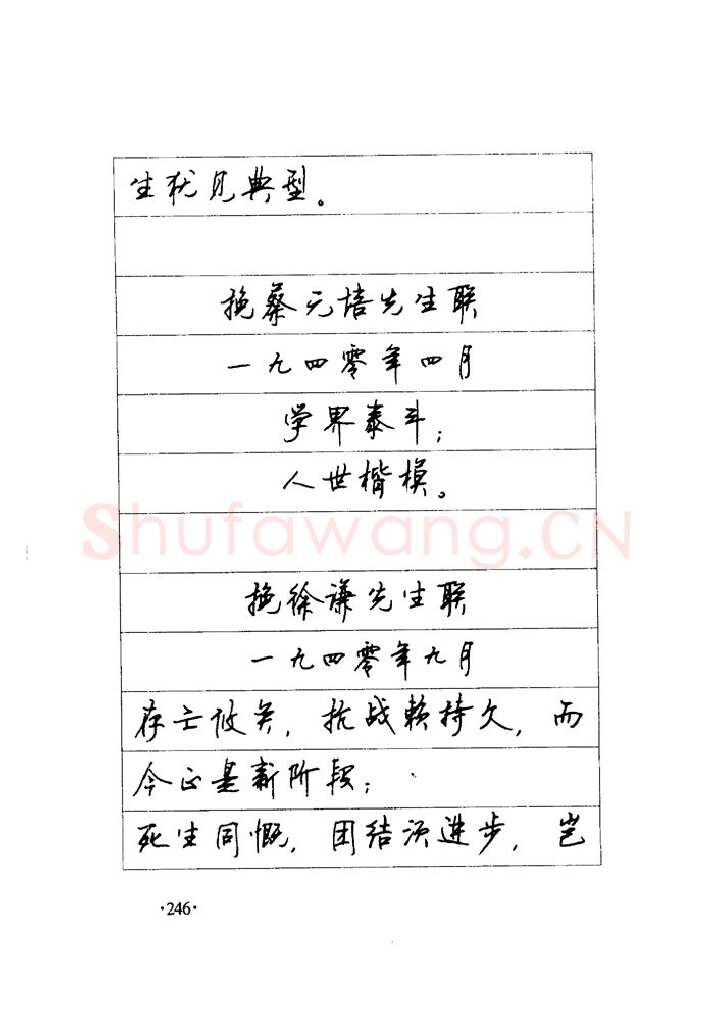 生犹见典型。
挽蔡元培先生联
一九四零年四月
学界泰斗；
人世楷模。
Shufawang.CN
挽徐谦先生联
一九四零年九月
存亡攸关，抗战赖持久，而
今正是新阶段；
死生同慨，团结须进步，岂
·246·